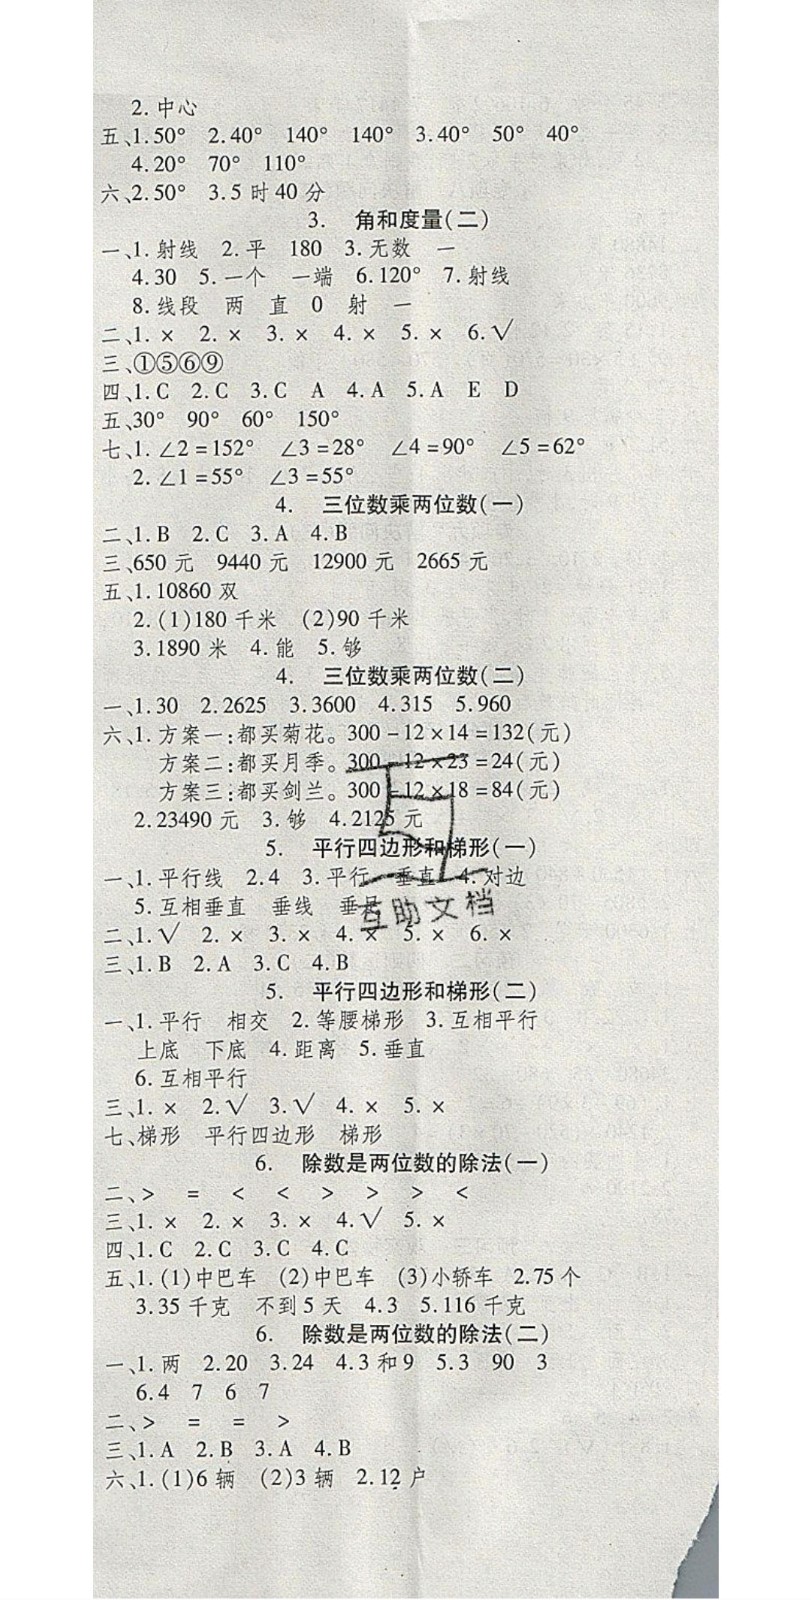 2.中心
五、1.50° 2.40° 140° 140° 3.40° 50° 40°
4.20° 70° 110°
六、2.50° 3.5时40分
3. 角和度量(二)
一、1.射线 2.平 180 3.无数 一
4.30 5.一个 一端 6.120° 7.射线
8.线段 两 直 0 射 一
二、1.× 2.× 3.× 4.× 5.× 6.√
三、①⑤⑥⑨
四、1.C 2.C 3.C A 4.A 5.A E D
五、30° 90° 60° 150°
七、1.∠2=152° ∠3=28° ∠4=90° ∠5=62°
2.∠1=55° ∠3=55°
4. 三位数乘两位数(一)
二、1.B 2.C 3.A 4.B
三、650元 9440元 12900元 2665元
五、1.10860双
2.(1)180千米 (2)90千米
3.1890米 4.能 5.够
4. 三位数乘两位数(二)
一、1.30 2.2625 3.3600 4.315 5.960
六、1.方案一:都买菊花。300-12×14=132(元)
方案二:都买月季。300-12×23=24(元)
方案三:都买剑兰。300-12×18=84(元)
2.23490元 3.够 4.2125元
5. 平行四边形和梯形(一)
一、1.平行线 2.4 3.平行 垂直 4.对边
5.互相垂直 垂线 垂足
互助文档
二、1.√ 2.× 3.× 4.× 5.× 6.×
三、1.B 2.A 3.C 4.B
5. 平行四边形和梯形(二)
一、1.平行 相交 2.等腰梯形 3.互相平行
上底 下底 4.距离 5.垂直
6.互相平行
三、1.× 2.√ 3.√ 4.× 5.×
七、梯形 平行四边形 梯形
6. 除数是两位数的除法(一)
二、> = < < > > > <
三、1.× 2.× 3.× 4.√ 5.×
四、1.C 2.C 3.C 4.C
五、1.(1)中巴车 (2)中巴车 (3)小轿车 2.75个
3.35千克 不到5天 4.3 5.116千克
6. 除数是两位数的除法(二)
一、1.两 2.20 3.24 4.3和9 5.3 90 3
6.4 7 6 7
二、> = = >
三、1.A 2.B 3.A 4.B
六、1.(1)6辆 (2)3辆 2.12户